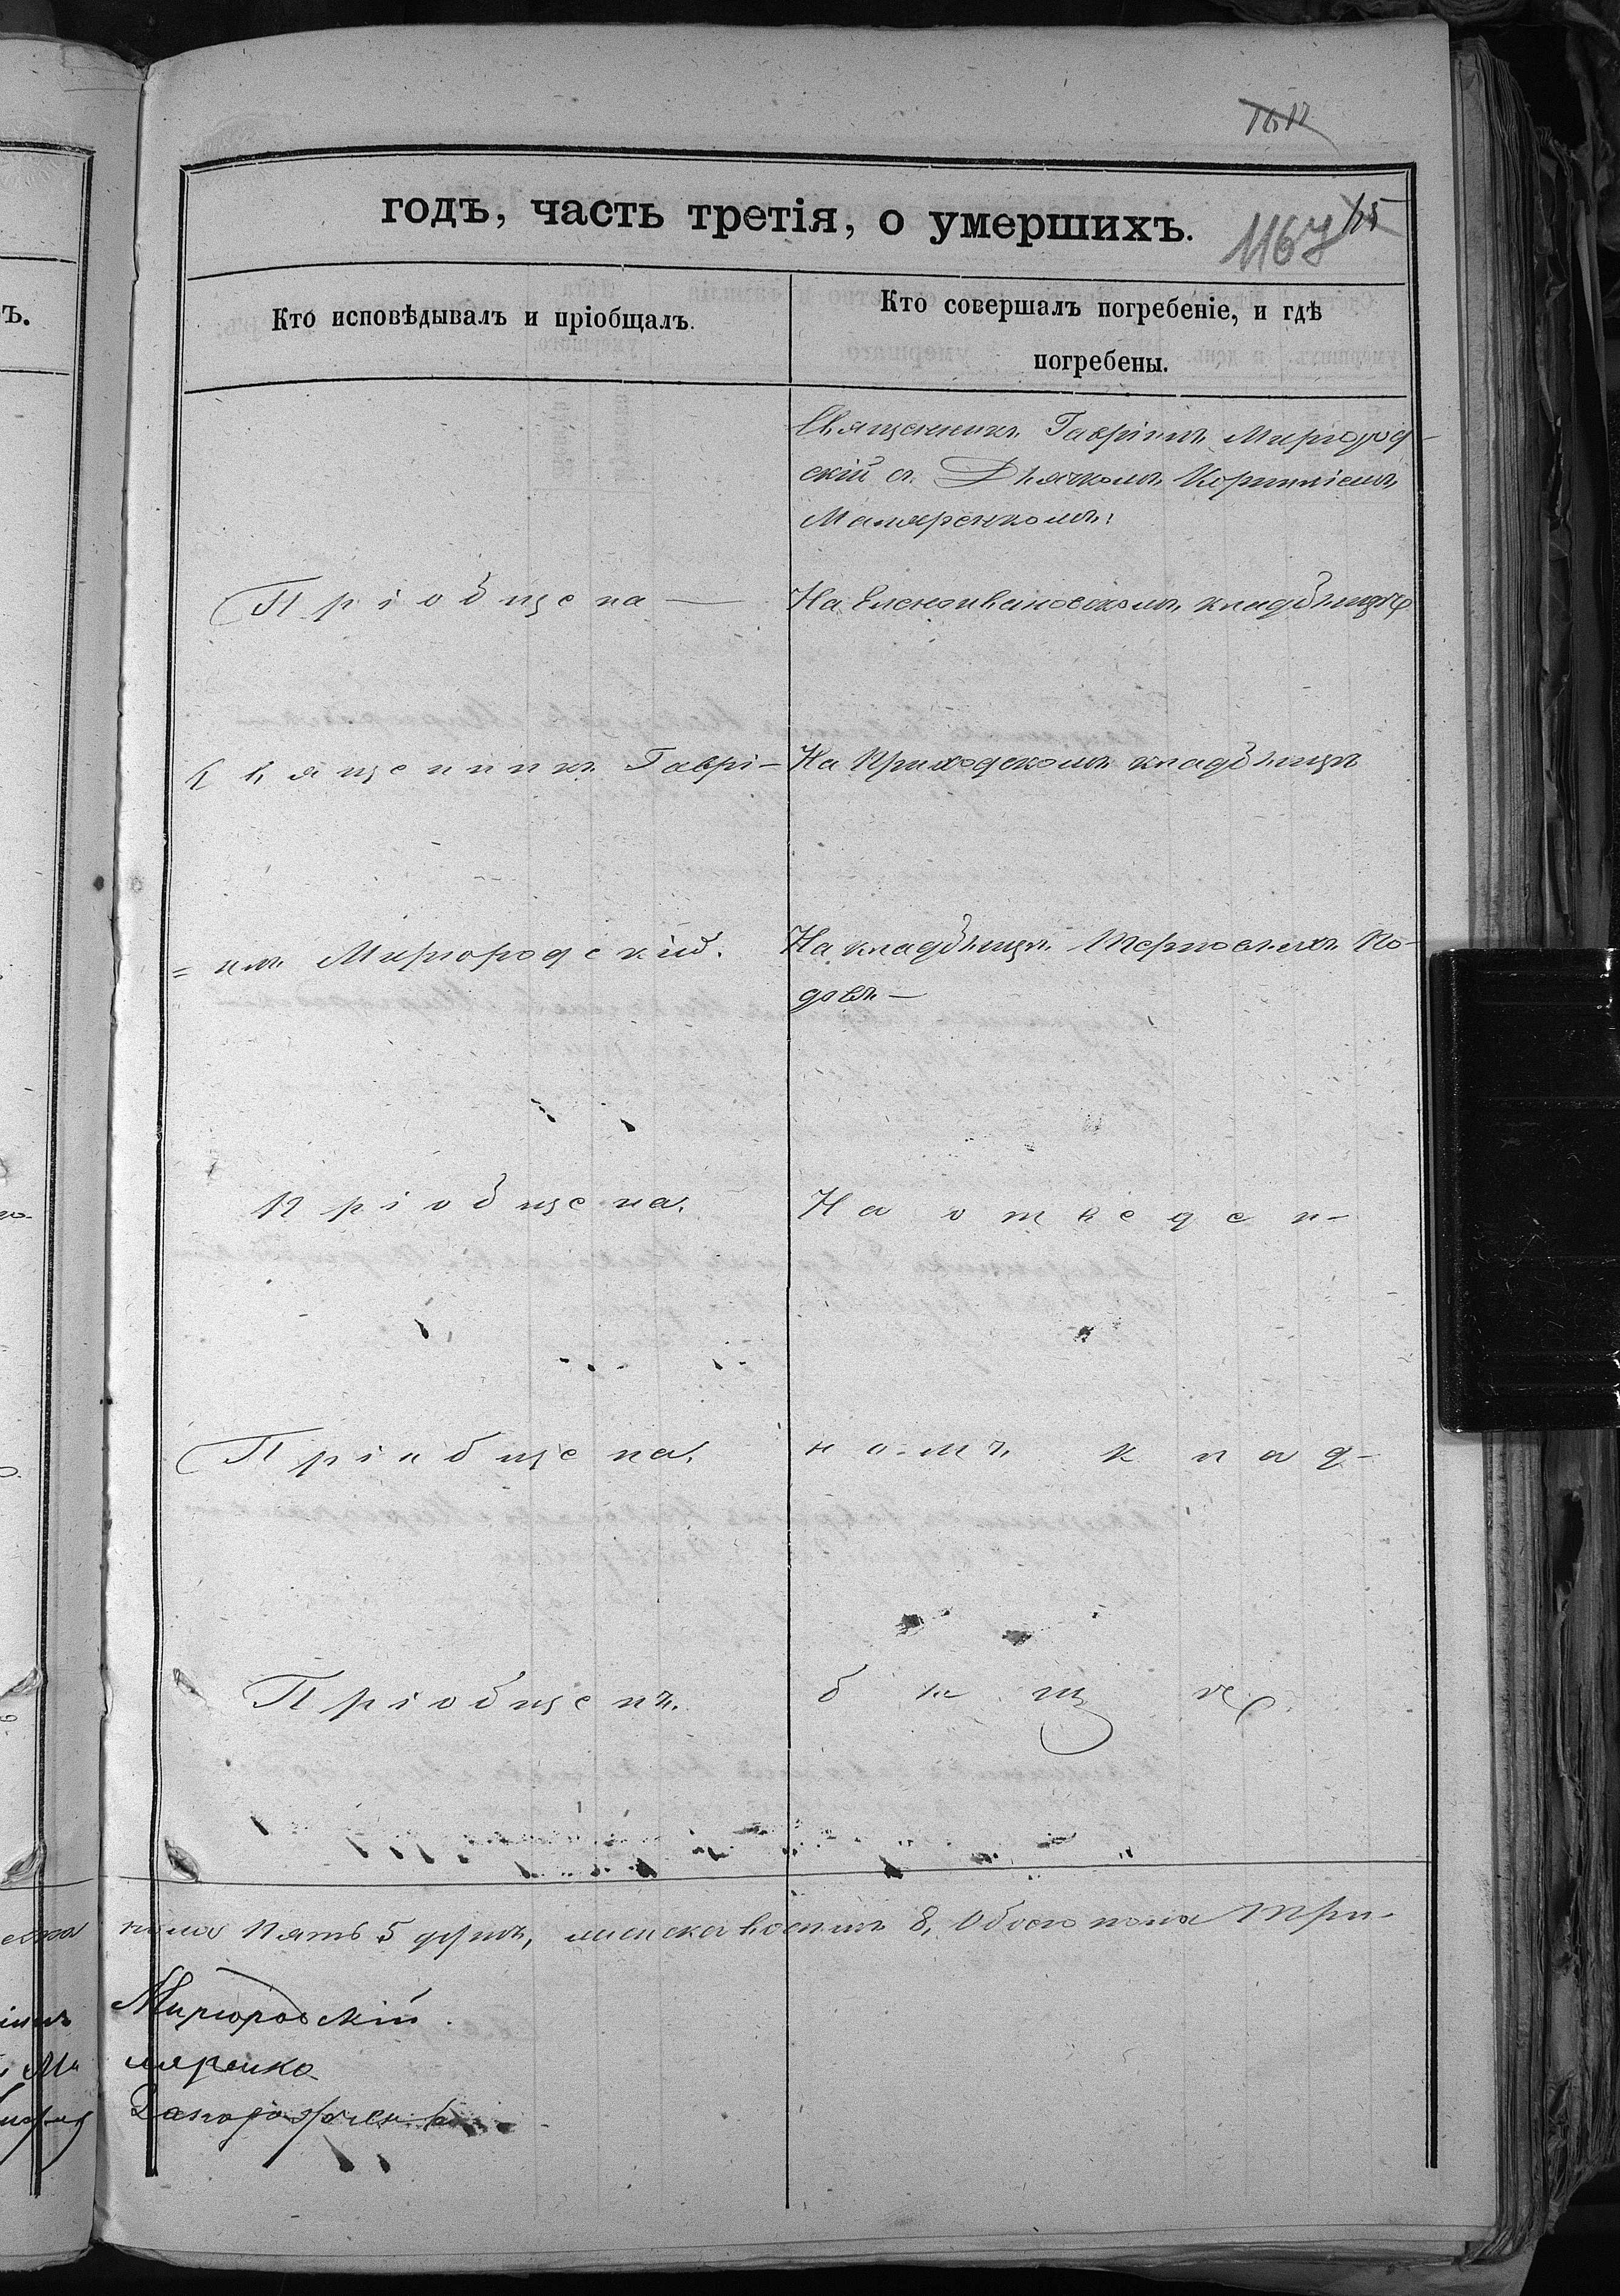 годъ, часть третія, о умершихъ.
1167
Кто исповѣдывалъ и пріобщалъ.
Кто совершалъ погребеніе, и гдѣ
погребены.
Священникъ Гавріилъ Миргород-
скій съ Дьячкомъ Корниліемъ
Маляренкомъ:
Пріобщена — На Еленоивановскомъ кладбищѣ
Священникъ Гаврі- На Приходскомъ кладбищѣ
= илъ Миргородскій. На кладбищѣ Терновыхъ По-
довъ —
Пріобщена. На отведен-
Пріобщена. номъ клад-
Пріобщенъ. бищѣ.
пола Пять 5 душъ, женска восемь 8, Обоего пола Три-
Миргородскій
ляренко